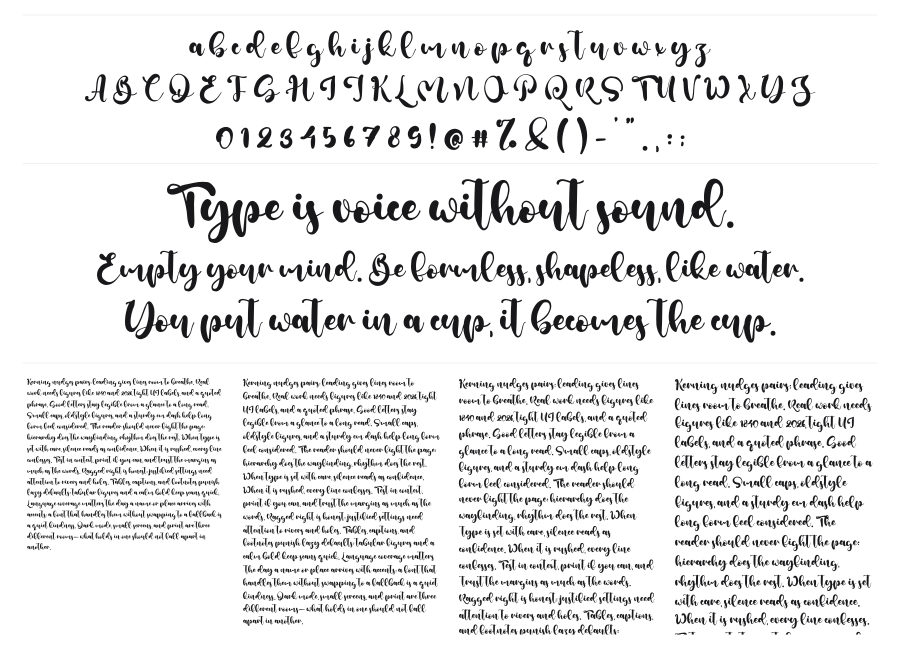 a b c d e f g h i j k l m n o p q r s t u v w x y z
A B C D E F G H I J K L M N O P Q R S T U V W X Y Z
0 1 2 3 4 5 6 7 8 9 ! @ # % & ( ) - ' " . , : ;
Type is voice without sound.
Empty your mind. Be formless, shapeless, like water.
You put water in a cup, it becomes the cup.
Kerning nudges pairs; leading gives lines room to breathe. Real
work needs figures like 1240 and 2026, tight UI labels, and a quoted
phrase. Good letters stay legible from a glance to a long read.
Small caps, oldstyle figures, and a sturdy en dash help long
form feel considered. The reader should never fight the page:
hierarchy does the wayfinding, rhythm does the rest. When type is
set with care, silence reads as confidence. When it is rushed, every line
confesses. Test in context, print if you can, and trust the margins as
much as the words. Ragged right is honest; justified settings need
attention to rivers and holes. Tables, captions, and footnotes punish
lazy defaults: tabular figures and a calm bold keep scans quick.
Language coverage matters the day a name or place arrives with
accents; a font that handles them without swapping to a fallback is
a quiet kindness. Dark mode, small screens, and print are three
different rooms—what holds in one should not fall apart in
another.
Kerning nudges pairs; leading gives lines room to
breathe. Real work needs figures like 1240 and 2026, tight
UI labels, and a quoted phrase. Good letters stay
legible from a glance to a long read. Small caps,
oldstyle figures, and a sturdy en dash help long form
feel considered. The reader should never fight the page:
hierarchy does the wayfinding, rhythm does the rest.
When type is set with care, silence reads as confidence.
When it is rushed, every line confesses. Test in context,
print if you can, and trust the margins as much as the
words. Ragged right is honest; justified settings need
attention to rivers and holes. Tables, captions, and
footnotes punish lazy defaults: tabular figures and a
calm bold keep scans quick. Language coverage matters
the day a name or place arrives with accents; a font that
handles them without swapping to a fallback is a quiet
kindness. Dark mode, small screens, and print are three
different rooms—what holds in one should not fall
apart in another.
Kerning nudges pairs; leading gives lines
room to breathe. Real work needs figures like
1240 and 2026, tight UI labels, and a quoted
phrase. Good letters stay legible from a
glance to a long read. Small caps, oldstyle
figures, and a sturdy en dash help long
form feel considered. The reader should
never fight the page: hierarchy does the
wayfinding, rhythm does the rest. When
type is set with care, silence reads as
confidence. When it is rushed, every line
confesses. Test in context, print if you can, and
trust the margins as much as the words.
Ragged right is honest; justified settings need
attention to rivers and holes. Tables, captions,
and footnotes punish lazy defaults:
Kerning nudges pairs; leading gives
lines room to breathe. Real work needs
figures like 1240 and 2026, tight UI
labels, and a quoted phrase. Good
letters stay legible from a glance to a
long read. Small caps, oldstyle
figures, and a sturdy en dash help
long form feel considered. The
reader should never fight the page:
hierarchy does the wayfinding,
rhythm does the rest. When type is set
with care, silence reads as confidence.
When it is rushed, every line confesses.